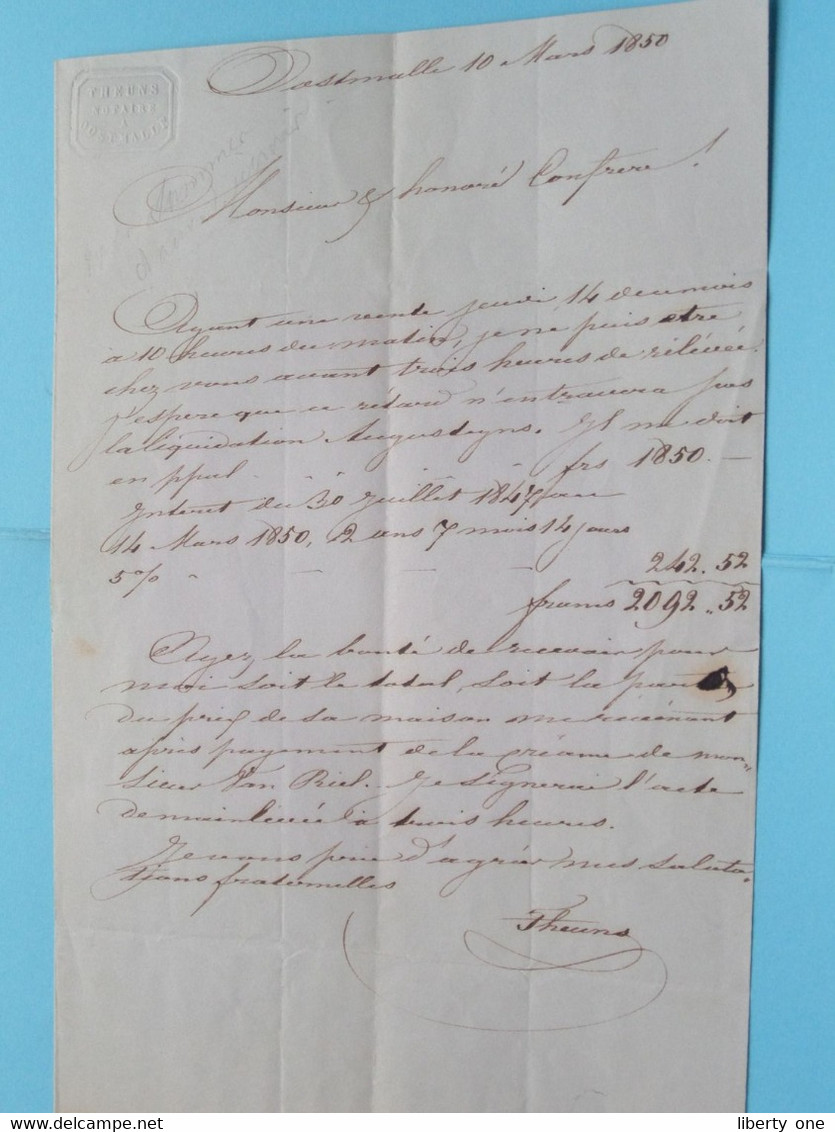 THEUNS
NOTAIRE
A
OOSTMALLE
Oostmalle 10 Mars 1850
Monsieur & honoré Confrere!
Ayant une vente jeudi 14 du mois
à 10 heures du matin, je ne puis etre
chez vous avant trois heures de rélévée.
J'espere que ce rétard n'entravera pas
la liquidation Augusteyns. Il me doit
en ppal. - - - frs 1850. —
Interet du 30 Juillet 1847 jau
14 Mars 1850, 2 ans 7 mois 14 jours
5% - - - 242.52
francs 2092.52
Ayez la bonté de recevoir pour
moi soit le total, soit la partie
du prix de sa maison me révénant
après payement de la créance de mon-
sieur Van Riel. Je signerai l'acte
de mainlévée à trois heures.
Je vous prie d'agréer mes saluta-
tions fraternelles
Theuns
liberty one